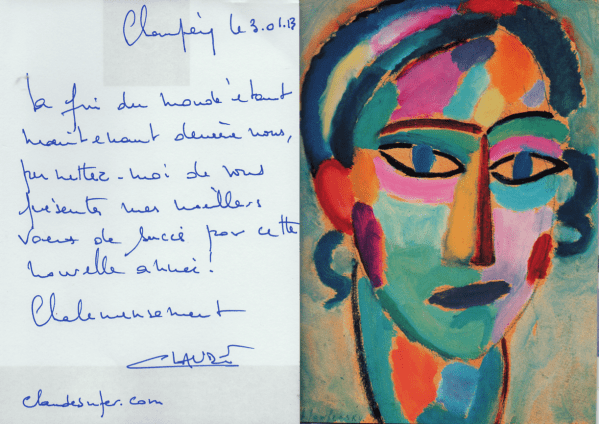 Champéry le 3.01.13
La fin du monde étant
maintenant derrière nous,
permettez-moi de vous
présenter mes meilleurs
voeux de succès pour cette
nouvelle année!
Chaleureusement
CLAUDE